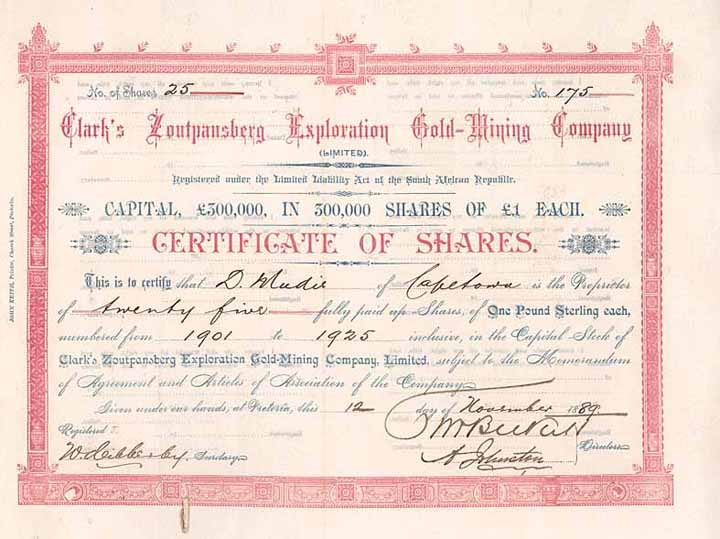 No. of Shares 25 No. 175
Clark's Zoutpansberg Exploration Gold-Mining Company
(LIMITED).
Registered under the Limited Liability Act of the South African Republic.
CAPITAL, £300,000, IN 300,000 SHARES OF £1 EACH.
CERTIFICATE OF SHARES.
This is to certify that D. Mudie of Capetown is the Proprietor
of twenty five fully paid up Shares, of One Pound Sterling each,
numbered from 1901 to 1925 inclusive, in the Capital Stock of
Clark's Zoutpansberg Exploration Gold-Mining Company, Limited, subject to the Memorandum
of Agreement and Articles of Association of the Company.
Given under our hands, at Pretoria, this 12 day of November 1889
Registered
A. Johnston Directors
Secretary
JOHN KEITH, Printer, Church Street, Pretoria.